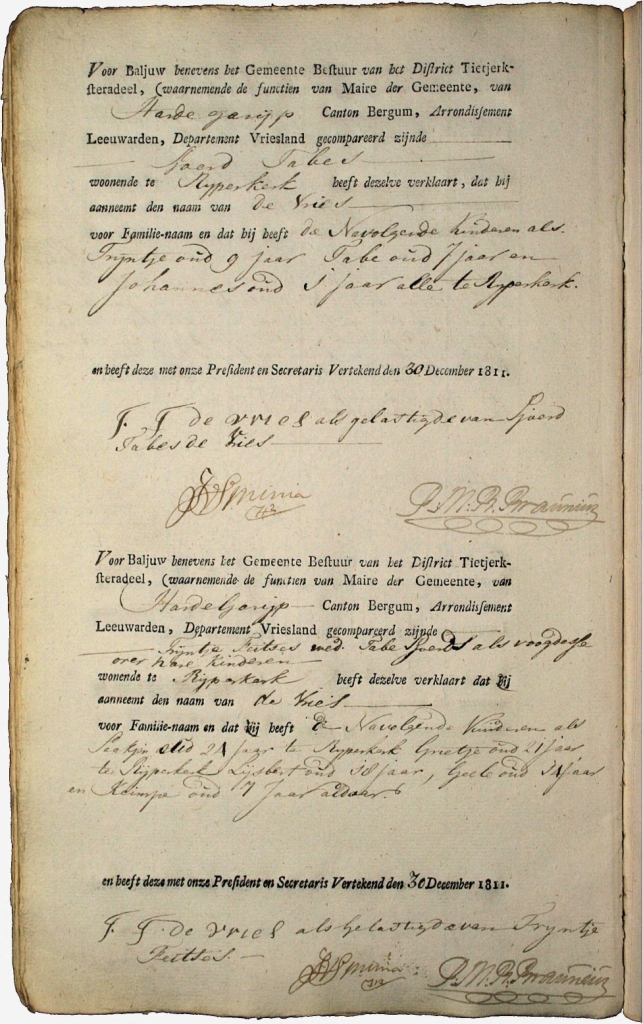 Voor Baljuw benevens het Gemeente Bestuur van het District Tietjerk-
steradeel, (waarnemende de functien van Maire der Gemeente, van
Hardegarijp Canton Bergum, Arrondissement
Leeuwarden, Departement Vriesland gecompareerd zijnde
Sjoerd Tabes
woonende te Ryperkerk heeft dezelve verklaart, dat hij
aanneemt den naam van de Vries
voor Familie-naam en dat hij heeft de Navolgende kinderen als.
Trijntje oud 9 jaar Tabe oud 7 jaar en
Johannes oud jaar alle te Ryperkerk.
en heeft deze met onze President en Secretaris Vertekend den 30 December 1811.
T. T de vries als gelastigde van Sjoerd
Tabes de Vries
Sminia
Voor Baljuw benevens het Gemeente Bestuur van het District Tietjerk-
steradeel, (waarnemende de functien van Maire der Gemeente, van
HardeGarijp Canton Bergum, Arrondissement
Leeuwarden, Departement Vriesland gecompareerd zijnde
Trijntje Feitses wed. Tabe Sjoerds als voogdesse
over hare kinderen
wonende te Rijperkerk heeft dezelve verklaart dat hij
aanneemt den naam van de Vries
voor Familie-naam en dat hij heeft de Navolgende Kinderen als
oud jaar te Ryperkerk Grietje oud 21 jaar
te Rijperkerk Lijsbert oud 18 jaar, oud jaar
en Keimpe oud 7 Jaar aldaar.
en heeft deze met onze President en Secretaris Vertekend den 30 December 1811.
T. T. de vries als Gelastigde van Tryntje
Feitses.
Sminia